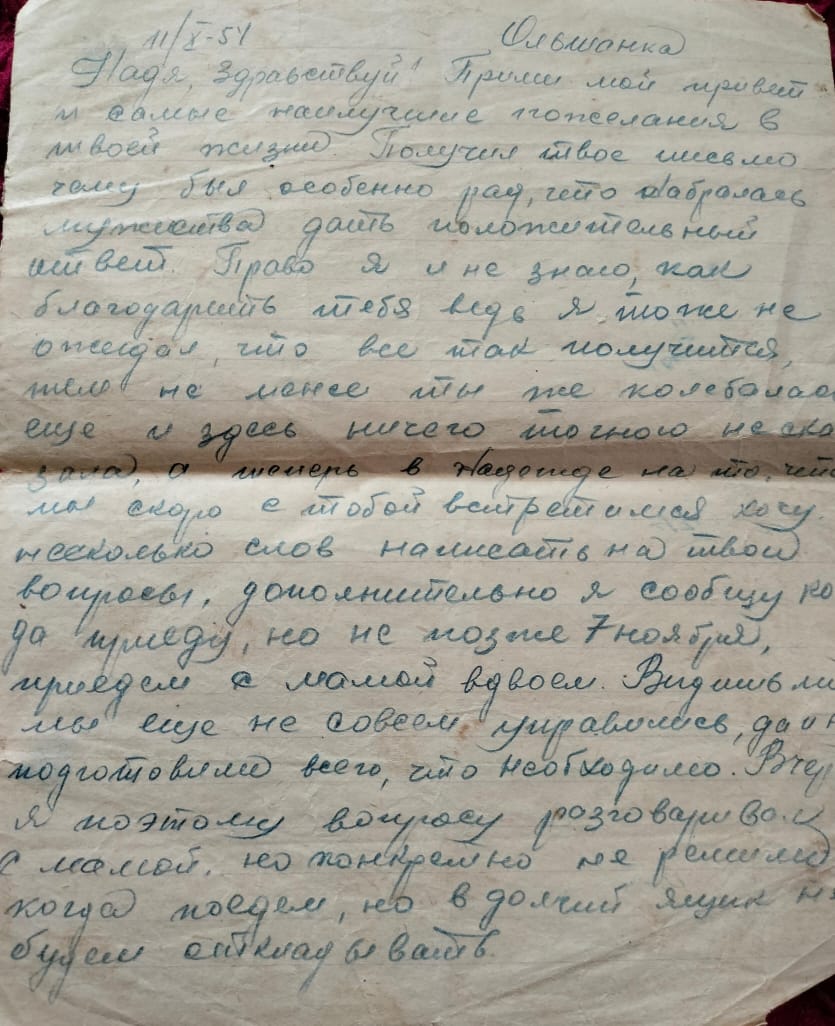 11/X-54 Ольшанка
Надя, здравствуй! Прими мой привет
и самые наилучшие пожелания в
твоей жизни Получил твое письмо
чему был особенно рад, что набралась
мужества дать положительный
ответ. Право я и не знаю, как
благодарить тебя ведь я тоже не
ожидал, что все так получится,
тем не менее ты же колебалас
еще и здесь ничего точного не ска
зала, а теперь в надежде на то, что
мы скоро с тобой встретимся хочу
несколько слов написать на твои
вопросы, дополнительно я сообщу ко
да приеду, но не позже 7 ноября,
приедем с мамой вдвоем. Видишь ли
мы еще не совсем управились, да и н
подготовили всего, что необходимо. Вчер
я поэтому вопросу разговаривал
с мамой, но конкретно не решили
когда поедем, но в долгий ящик не
будем откладывать.